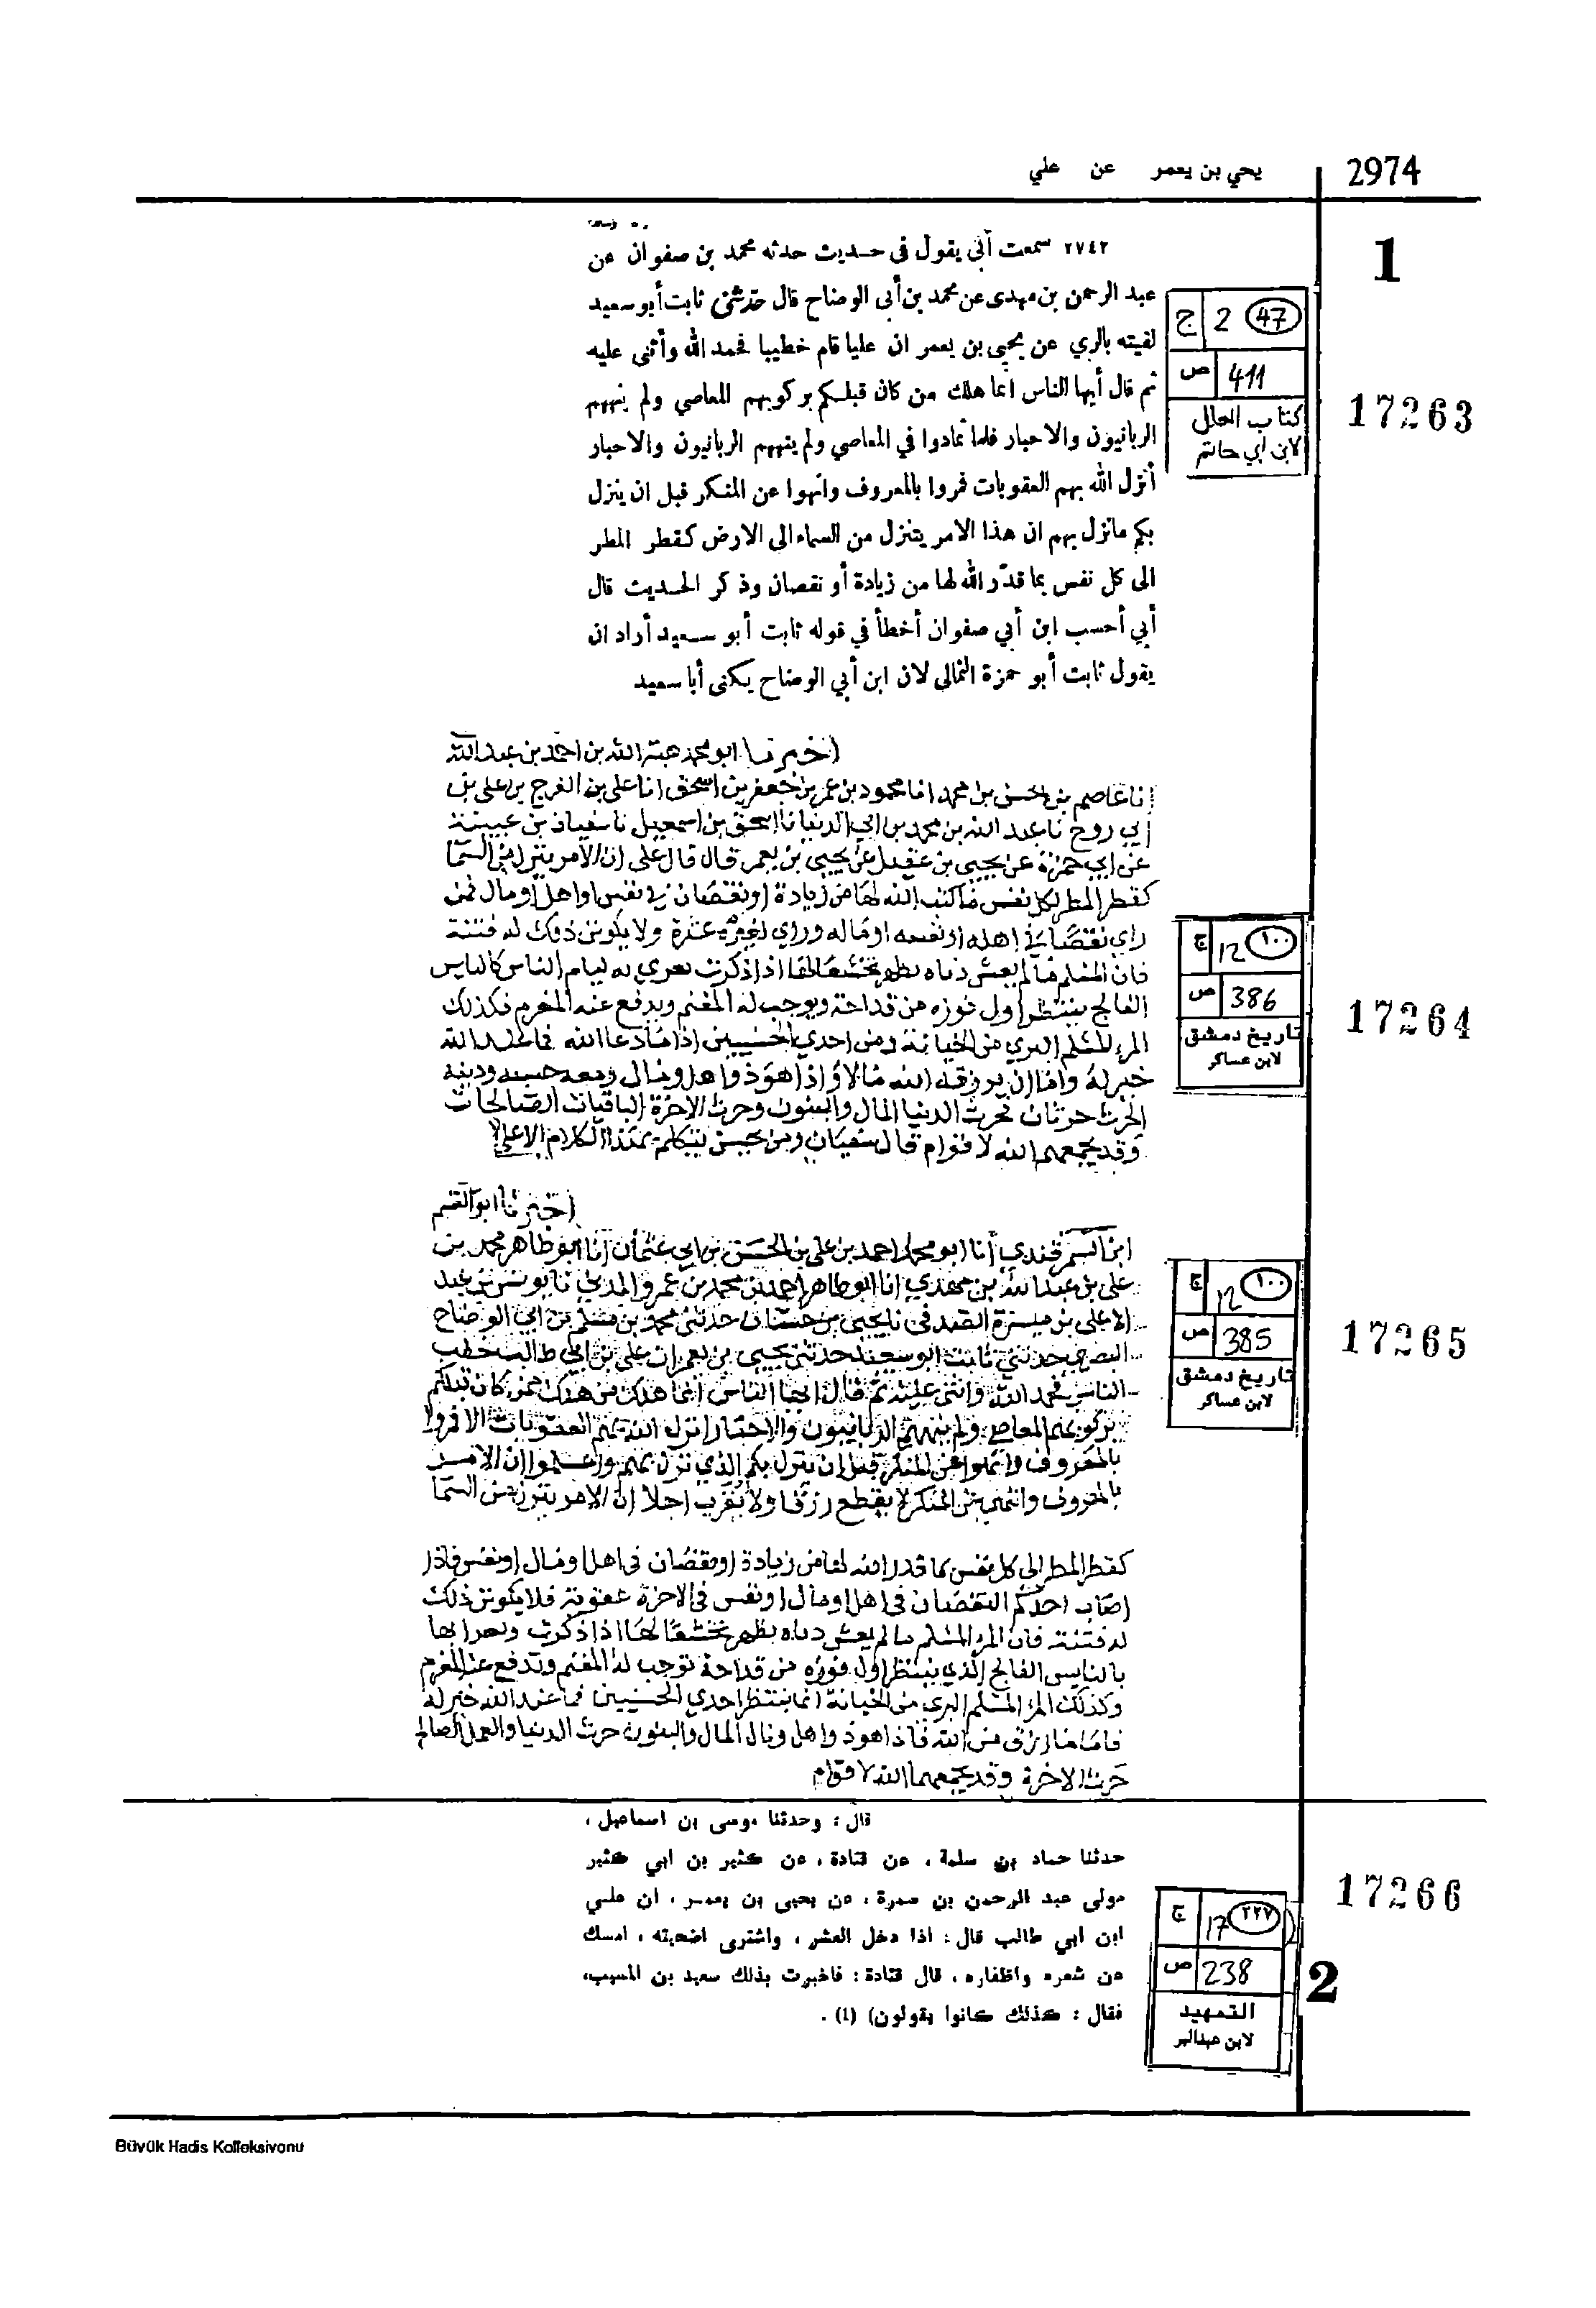 2974
يحي بن يعمر عن علي
1
٢٧٤٢ سمعت أبي يقول في حديث حدثه محمد بن صفوان عن
عبد الرحمن بن مهدى عن محمد بن أبى الوضاح قال حدثنى ثابت أبو سعيد
لقيته بالري عن يحيى بن يعمر ان عليا قام خطيبا فحمد الله وأثنى عليه
ثم قال أيها الناس انما هلك من كان قبلكم بركوبهم المعاصي ولم ينههم
الربانيون والاحبار فلما تمادوا في المعاصي ولم ينههم الربانيون والاحبار
أنزل الله بهم العقوبات فمروا بالمعروف وانهوا عن المنكر قبل ان ينزل
بكم مانزل بهم ان هذا الامر يتنزل من السماء الى الارض كقطر المطر
الى كل نفس بما قدّر الله لها من زيادة أو نقصان وذكر الحديث قال
أبي أحسب ابن أبي صفوان أخطأ في قوله ثابت أبو سعيد أراد ان
يقول ثابت أبو حمزة الثمالى لان ابن أبي الوضاح يكنى أبا سعيد
47 2 ج
411 ص
كتاب العلل
لابن ابي حاتم
17263
اخبرنا ابو محمد هبة الله بن احمد بن عبد الله
انا عاصم بن الحسن بن محمد انا محمود بن عمر بن جعفر بن اسحق انا على بن الفرج بن على بن
ابي روح نا عبد الله بن محمد بن ابي الدنيا نا اسحق بن اسمعيل نا سفيان بن عيينة
عن ابي حمزة عن يحيى بن عقيل عن يحيى بن يعمر قال قال على ان الامر ينزل من السما
كقطر المطر لكل نفس ما كتب الله لها من زيادة او نقصان في نفس او اهل او مال فمن
راي نقصا في اهله او نفسه او ماله وراي لغيره عثرة ولا يكونن ذلك له فتنة
فان المسلم ما لم يعش دناه يظهر تخشعا لها اذا ذكرت لئام الناس كالياسر
الفالج ينتظر اول فوزه من قداحه ويوجب له المغنم ويدفع عنه المغرم فكذلك
المرء المسلم البري من الخيانة احدي الحسنيين اذا ما دعا الله فما عند الله
خير له واما ان يرزقه الله مالا فاذا هو ذو اهل ومال ومعه حسبه ودينه
الحرث حرثان فحرث الدنيا المال والبنون وحرث الاخرة الباقيات الصالحات
وقد يجمعهما الله لاقوام قال سفيان ومن يحسن يتكلم بهذا الكلام الا علي
١٠٠ 12 ج
386 ص
تاريخ دمشق
لابن عساكر
17264
اخبرنا ابو القسم
ابن السمرقندي انا ابو محمد احمد بن على بن الحسن بن ابي عثمان انا ابو طاهر محمد بن
على بن عبد الله بن مهدي انا ابو طاهر احمد بن محمد بن عمرو المديني نا يونس بن عبد
الاعلى بن ميسرة الصدفى نا يحيى بن حسان حدثني محمد بن مسلم بن ابي الوضاح
البصري حدثني ثابت ابو سعيد حدثني يحيى بن يعمر ان على بن ابي طالب خطب
الناس فحمد الله واثنى عليه ثم قال ايها الناس انما هلك من هلك ممن كان قبلكم
بركوبهم المعاصي ولم ينههم الربانيون والاحبار انزل الله بهم العقوبات الا فمروا
بالمعروف وانهوا عن المنكر قبل ان ينزل بكم الذي نزل بهم واعلموا ان الامر
بالمعروف والنهي عن المنكر لا يقطع رزقا ولا يقرب اجلا ان الامر ينزل من السما
كقطر المطر الى كل نفس بما قدر الله لها من زيادة او نقصان فى اهل او مال او نفس فاذا
اصاب احدكم النقصان فى اهل او مال او نفس في الاخرة عقوبة فلا يكونن ذلك
له فتنة فان المرء المسلم ما لم يعش دناه يظهر تخشعا لها اذا ذكرت
بالياسر الفالج الذي ينتظر اول فوزه من قداحه توجب له المغنم وتدفع عنه المغرم
وكذلك المرء المسلم البري من الخيانة انما ينتظر احدي الحسنيين فما عند الله خير له
من الله فاذا هو ذو اهل ومال المال والبنون حرث الدنيا والعمل الصالح
حرث الاخرة وقد يجمعهما الله لاقوام
١٠٠ 12 ج
385 ص
تاريخ دمشق
لابن عساكر
17265
قال : وحدثنا موسى بن اسماعيل ،
حدثنا حماد بن سلمة ، عن قتادة ، عن كثير بن ابي كثير
مولى عبد الرحمن بن سمرة ، عن يحيى بن يعمر ، ان علي
ابن ابي طالب قال : اذا دخل العشر ، واشترى اضحيته ، امسك
عن شعره واظفاره ، قال قتادة : فاخبرت بذلك سعيد بن المسيب،
فقال : كذلك كانوا يقولون) (1) .
٢٢٧ 17 ج
238 ص
التمهيد
لابن عبدالبر
17266
2
Büyük Hadis Kolleksiyonu